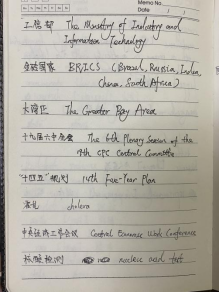 Memo No.
Date
工信部 The Ministry of Industry and
Information Technology
金砖国家 BRICS (Brazil, Russia, India,
China, South Africa)
大湾区 The Greater Bay Area
十九届六中全会 The 6th Plenary Session of the
19th CPC Central Committee
"十四五"规划 14th Five-Year Plan
霍乱 cholera
中央经济工作会议 Central Economic Work Conference
核酸检测 nucleic acid test